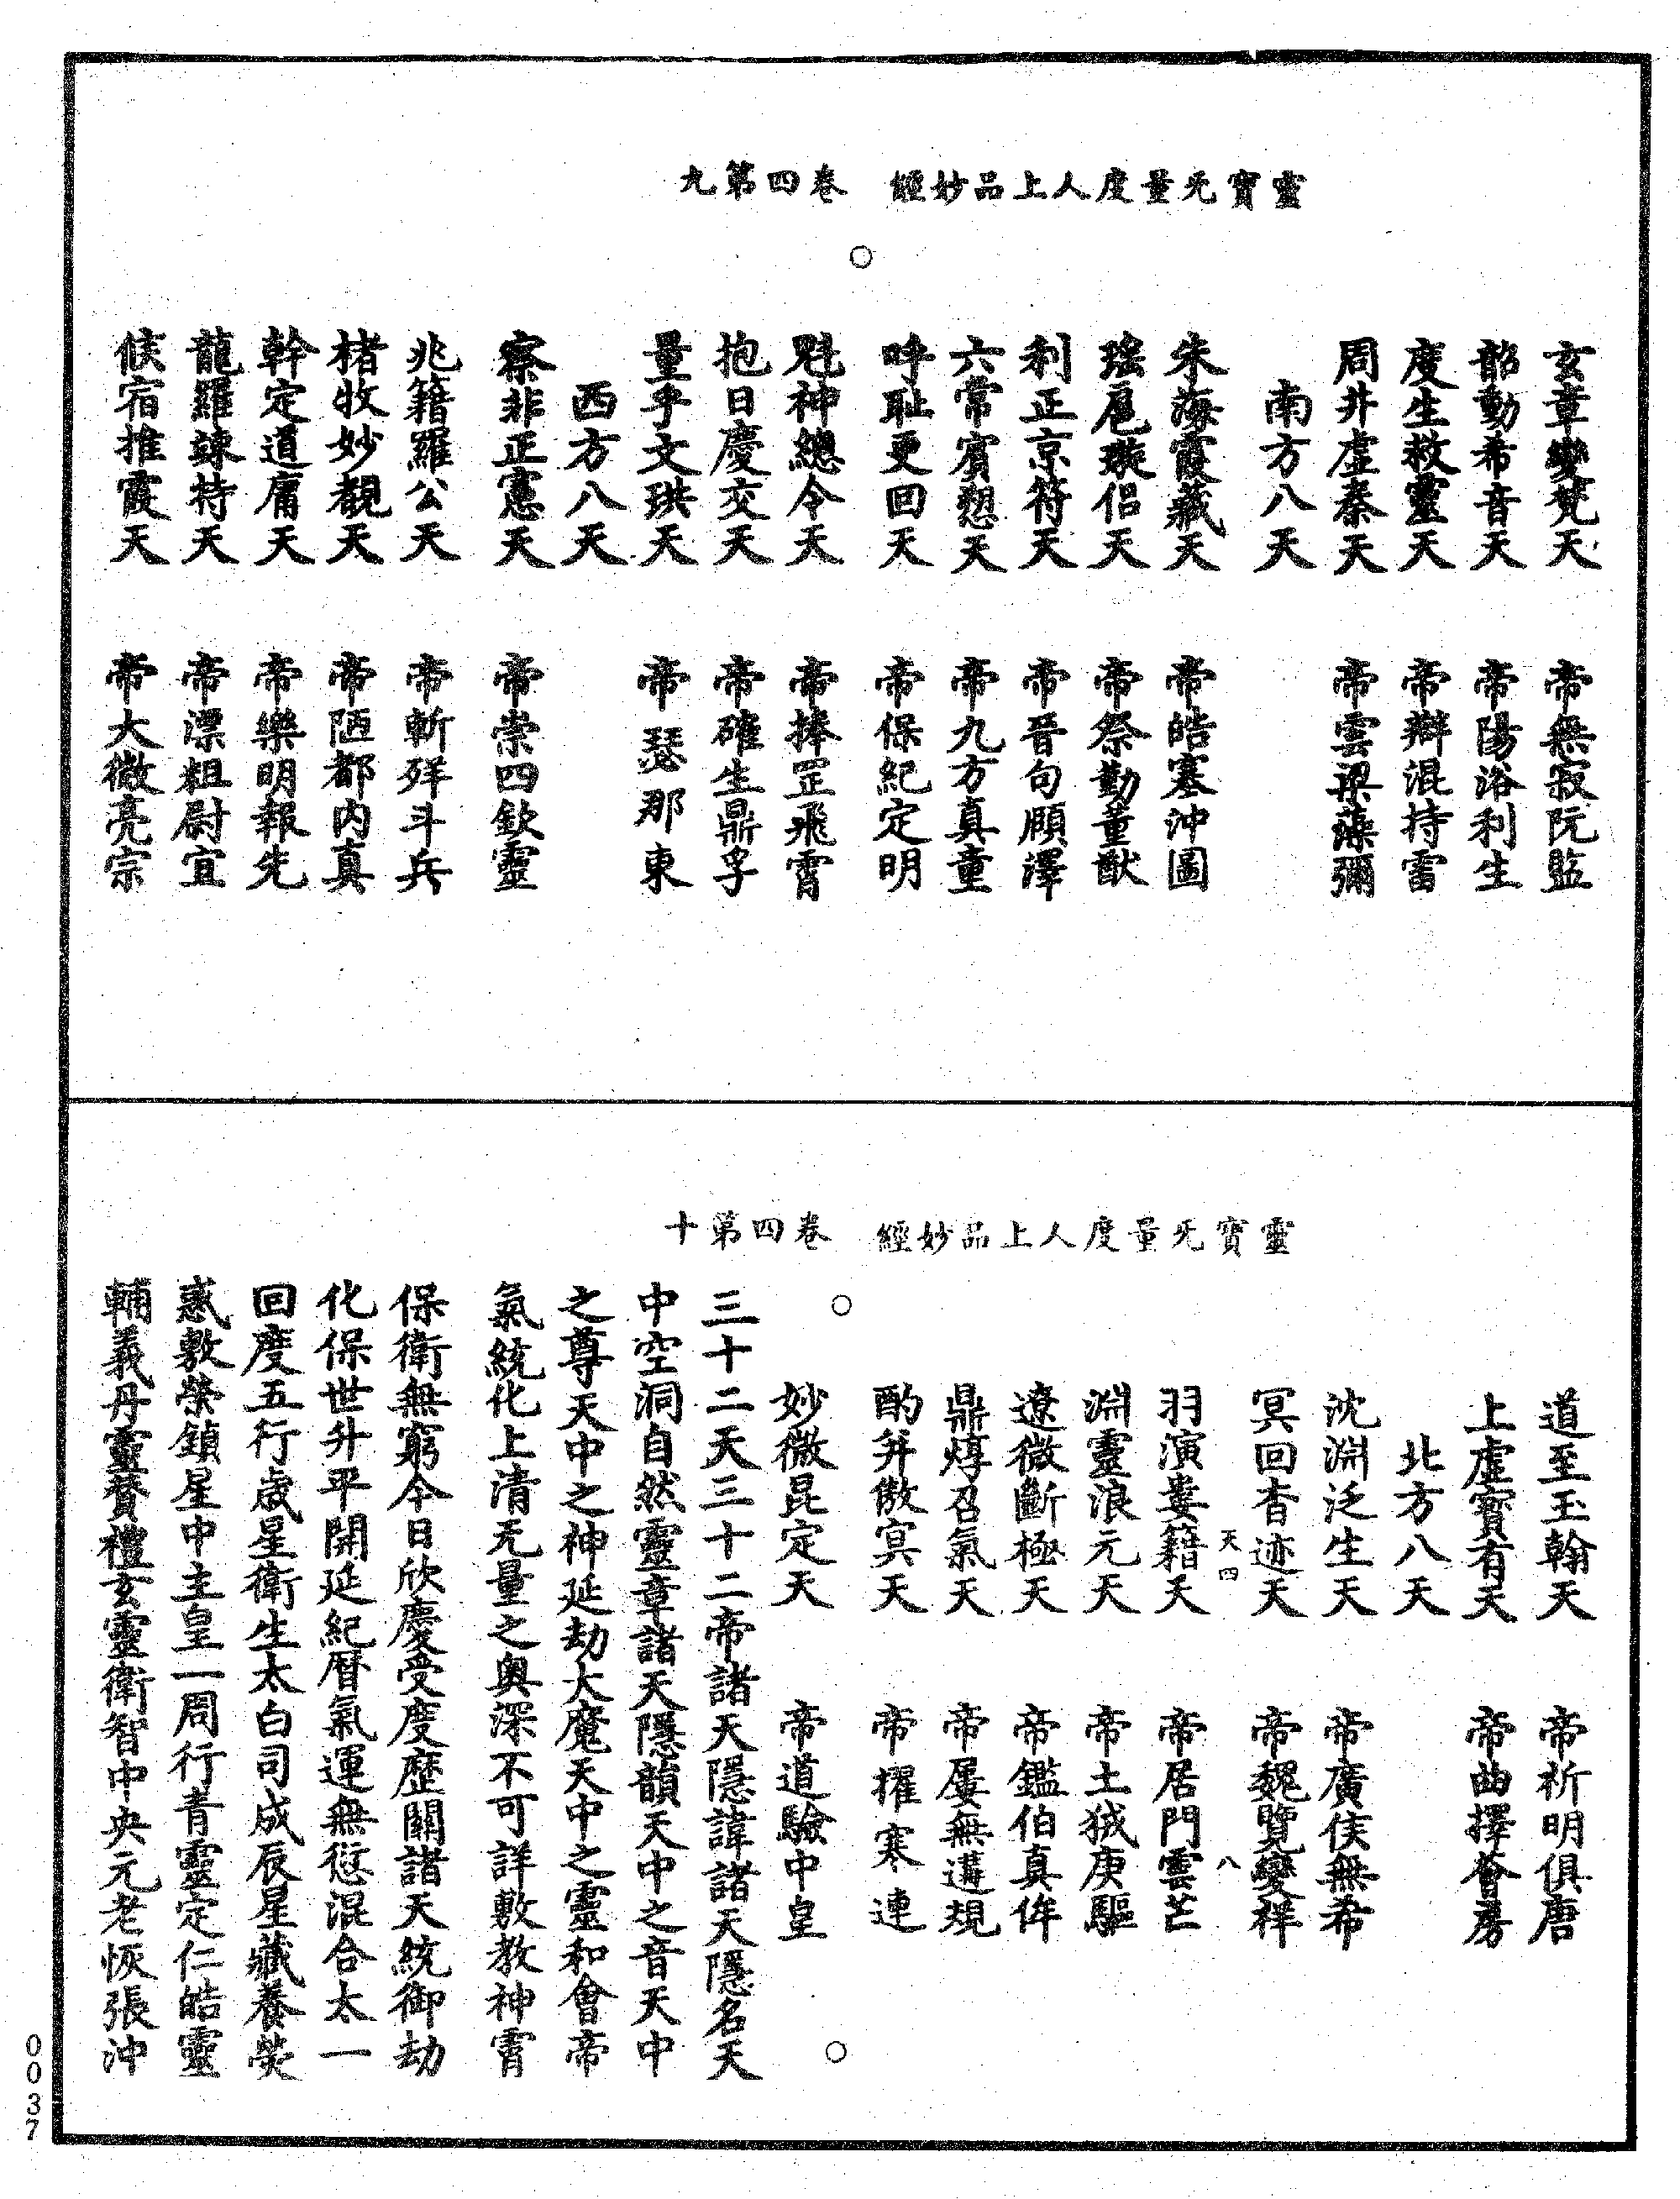 靈寶无量度人上品妙經　卷四第九
玄章變梵天　帝無寂阮監
韶動希音天　帝陽浴利生
度生救靈天　帝辯混持雷
周井虛秦天　帝雲梁藻彌
南方八天
朱海霞藏天　帝皓塞沖圖
瑤扈璇侶天　帝祭勤董猷
利正京符天　帝晉句願澤
六常賓愬天　帝九方真童
呼耻更回天　帝保紀定明
魁神總令天　帝捧罡飛霄
抱日慶交天　帝確生鼎孚
量乎文珙天　帝瑟那東
西方八天
察非正憲天　帝崇四欽靈
兆籍羅公天　帝斬歼斗兵
楮牧妙覩天　帝陋都内真
幹定道庸天　帝樂明報先
龍羅竦持天　帝漂粗尉宜
候宿推霞天　帝大微亮宗
靈寶无量度人上品妙經　卷四第十
道至玉翰天　帝祈明俱唐
上虛寶有天　帝曲擇薈房
北方八天
沈淵泛生天　帝廣侯無希
冥回杳迹天　帝魏覽變祥
天四　八
羽演婁籍天　帝居門雲芒
淵靈浪元天　帝土狨庚驅
遼微斷極天　帝鑑伯真侔
鼎焞召氣天　帝屢無遘規
酌并傲冥天　帝擢寒連
妙微昆定天　帝道驗中皇
三十二天三十二帝諸天隱諱諸天隱名天
中空洞自然靈章諸天隱韻天中之音天中
之尊天中之神延劫大魔天中之靈和會帝
氣統化上清无量之奥深不可詳敷教神霄
保衛無窮今日欣慶受度歷關諸天統御劫
化保世升平開延紀曆氣運無愆混合太一
回度五行歲星衛生太白司成辰星藏養熒
惑敷榮鎮星中主皇一周行青靈定仁皓靈
輔義丹靈贊禮玄靈衛智中央元老恢張沖
0037